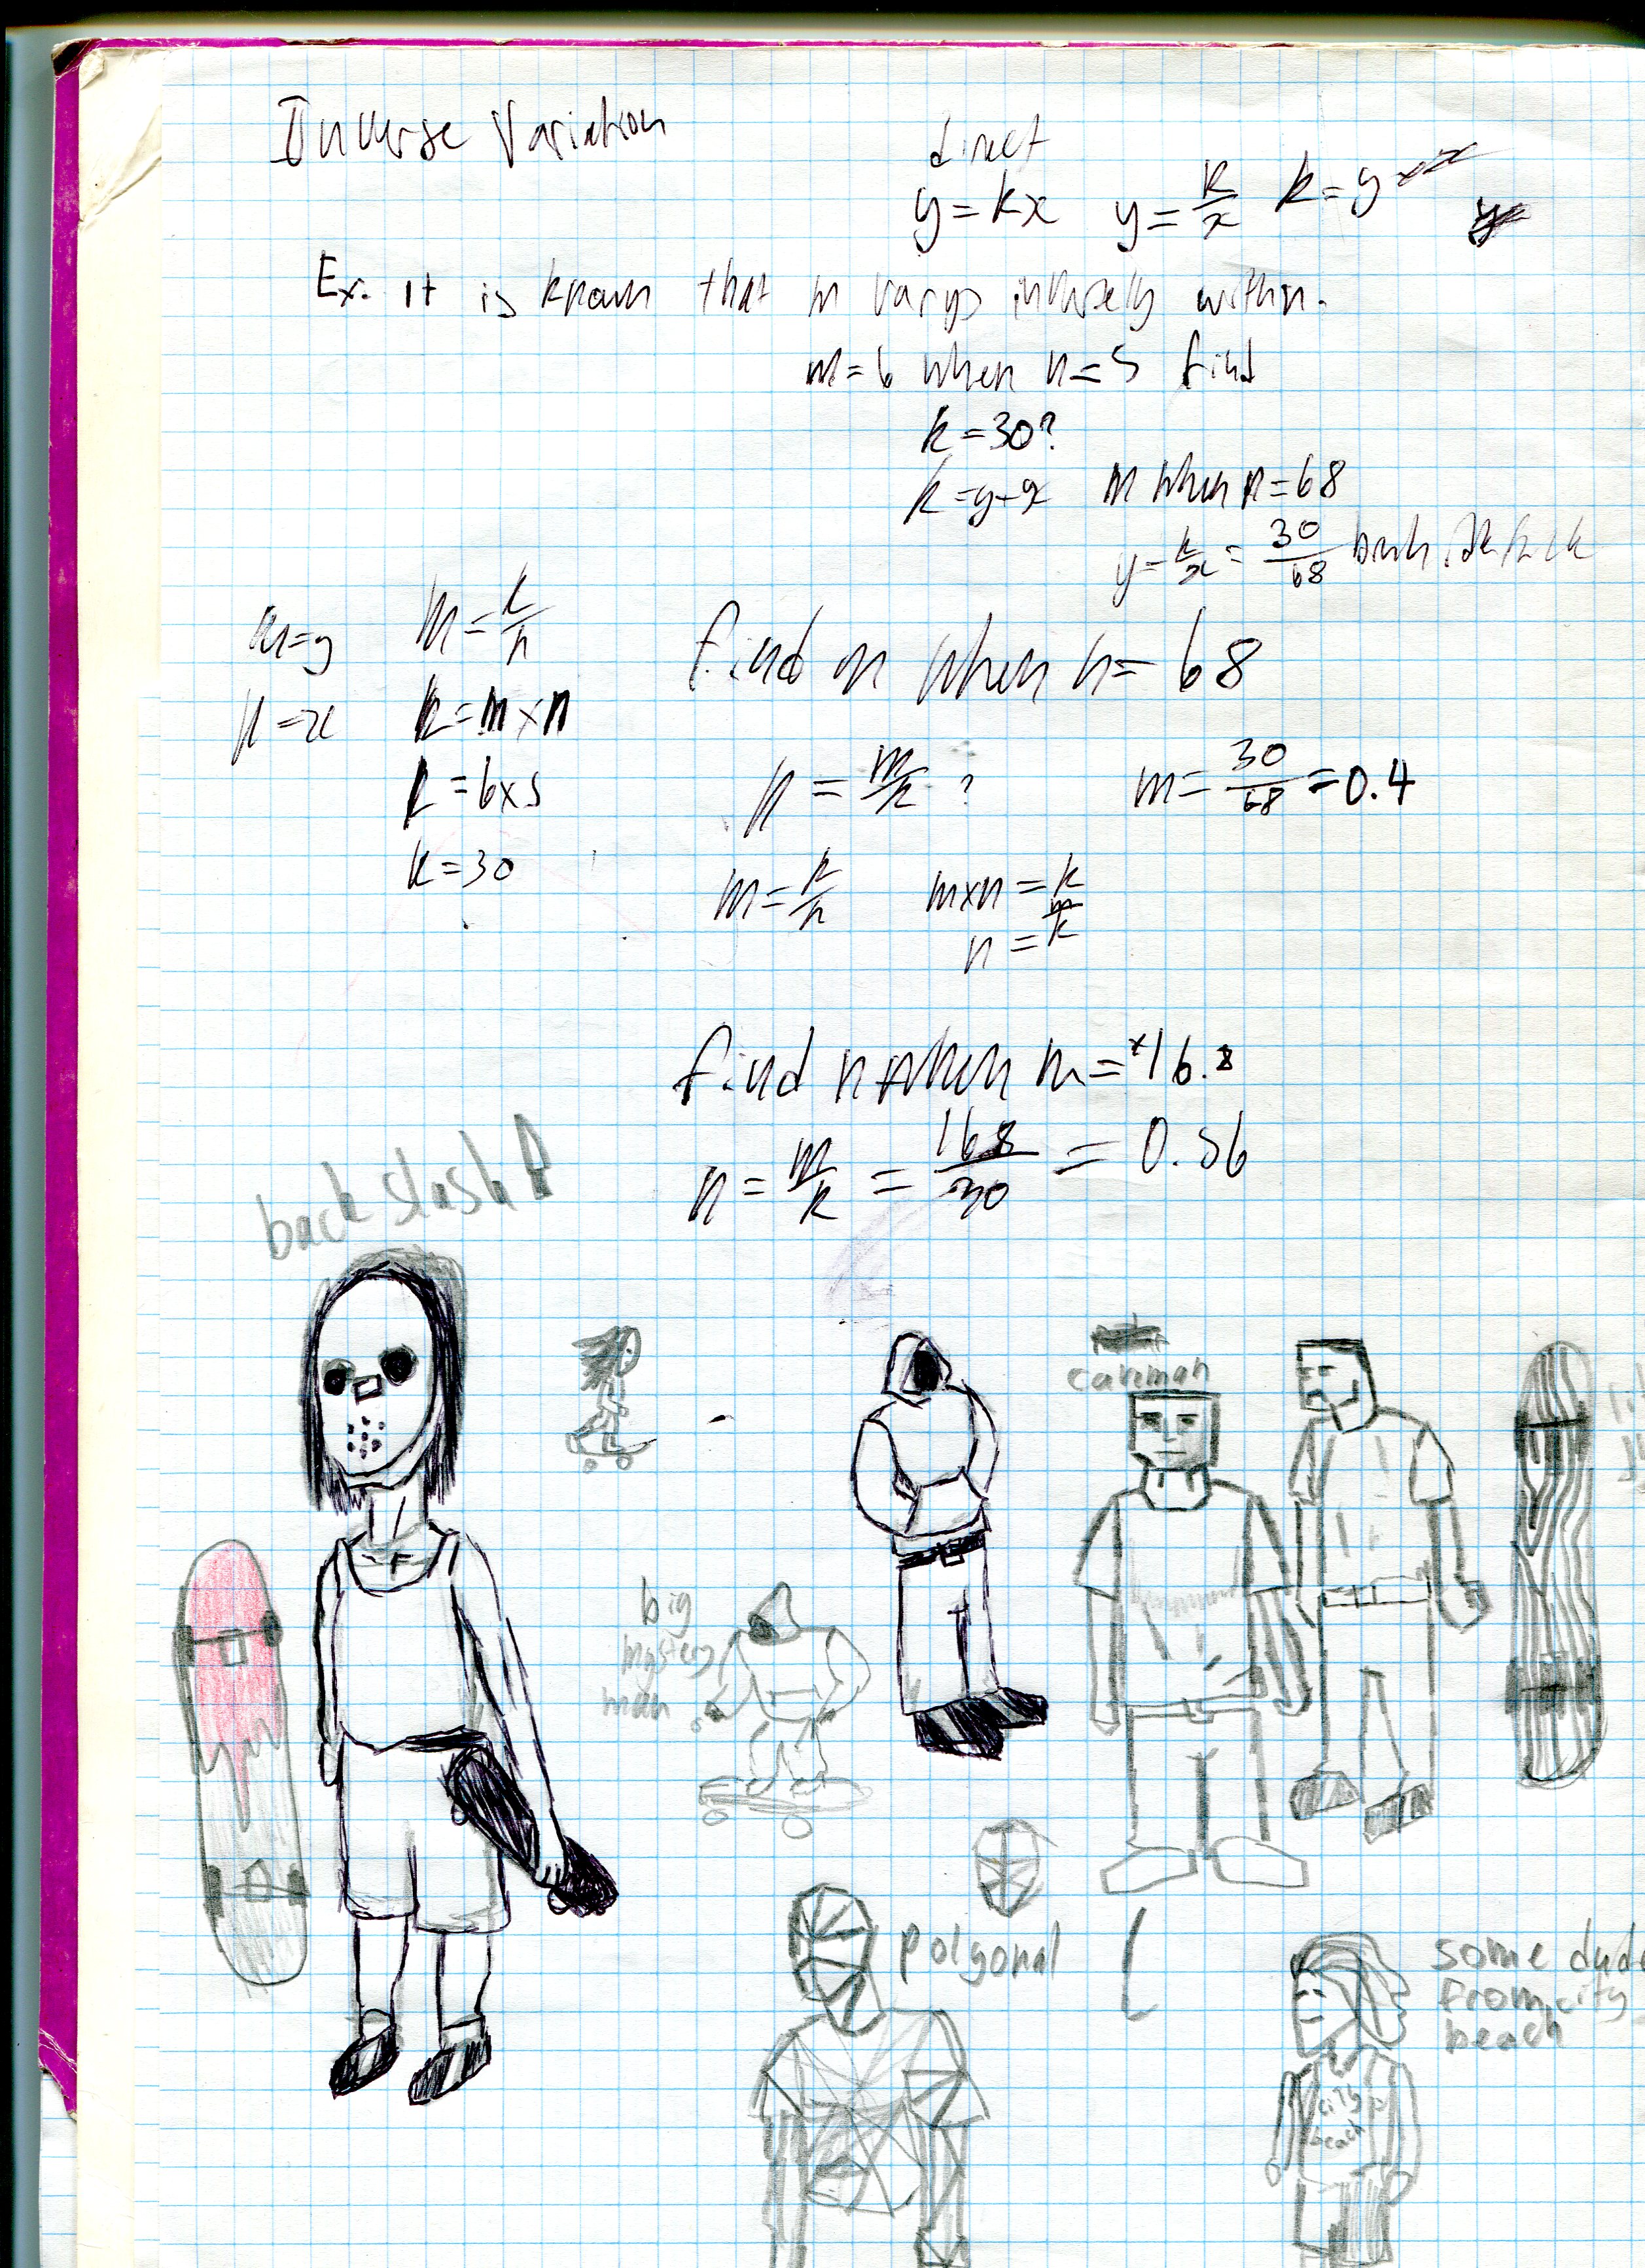 Inverse Variation
direct
y = kx y = k/x k = y
Ex. it is known that m varys inversely with n.
m = 6 when n = 5 find
k = 30?
k = y x m when n = 68
y = k/x = 30/68
m = y m = k/n find m when n = 68
n = x k = m x n
k = 6 x 5 n = m/k ? m = 30/68 = 0.4
k = 30 m = k/n m x n = k
n = m/k
find n when m = 16.8
n = m/k = 168/30 = 0.56
back slash
caveman
big
mystery
man
polygonal
some dude
from city
beach
city
beach